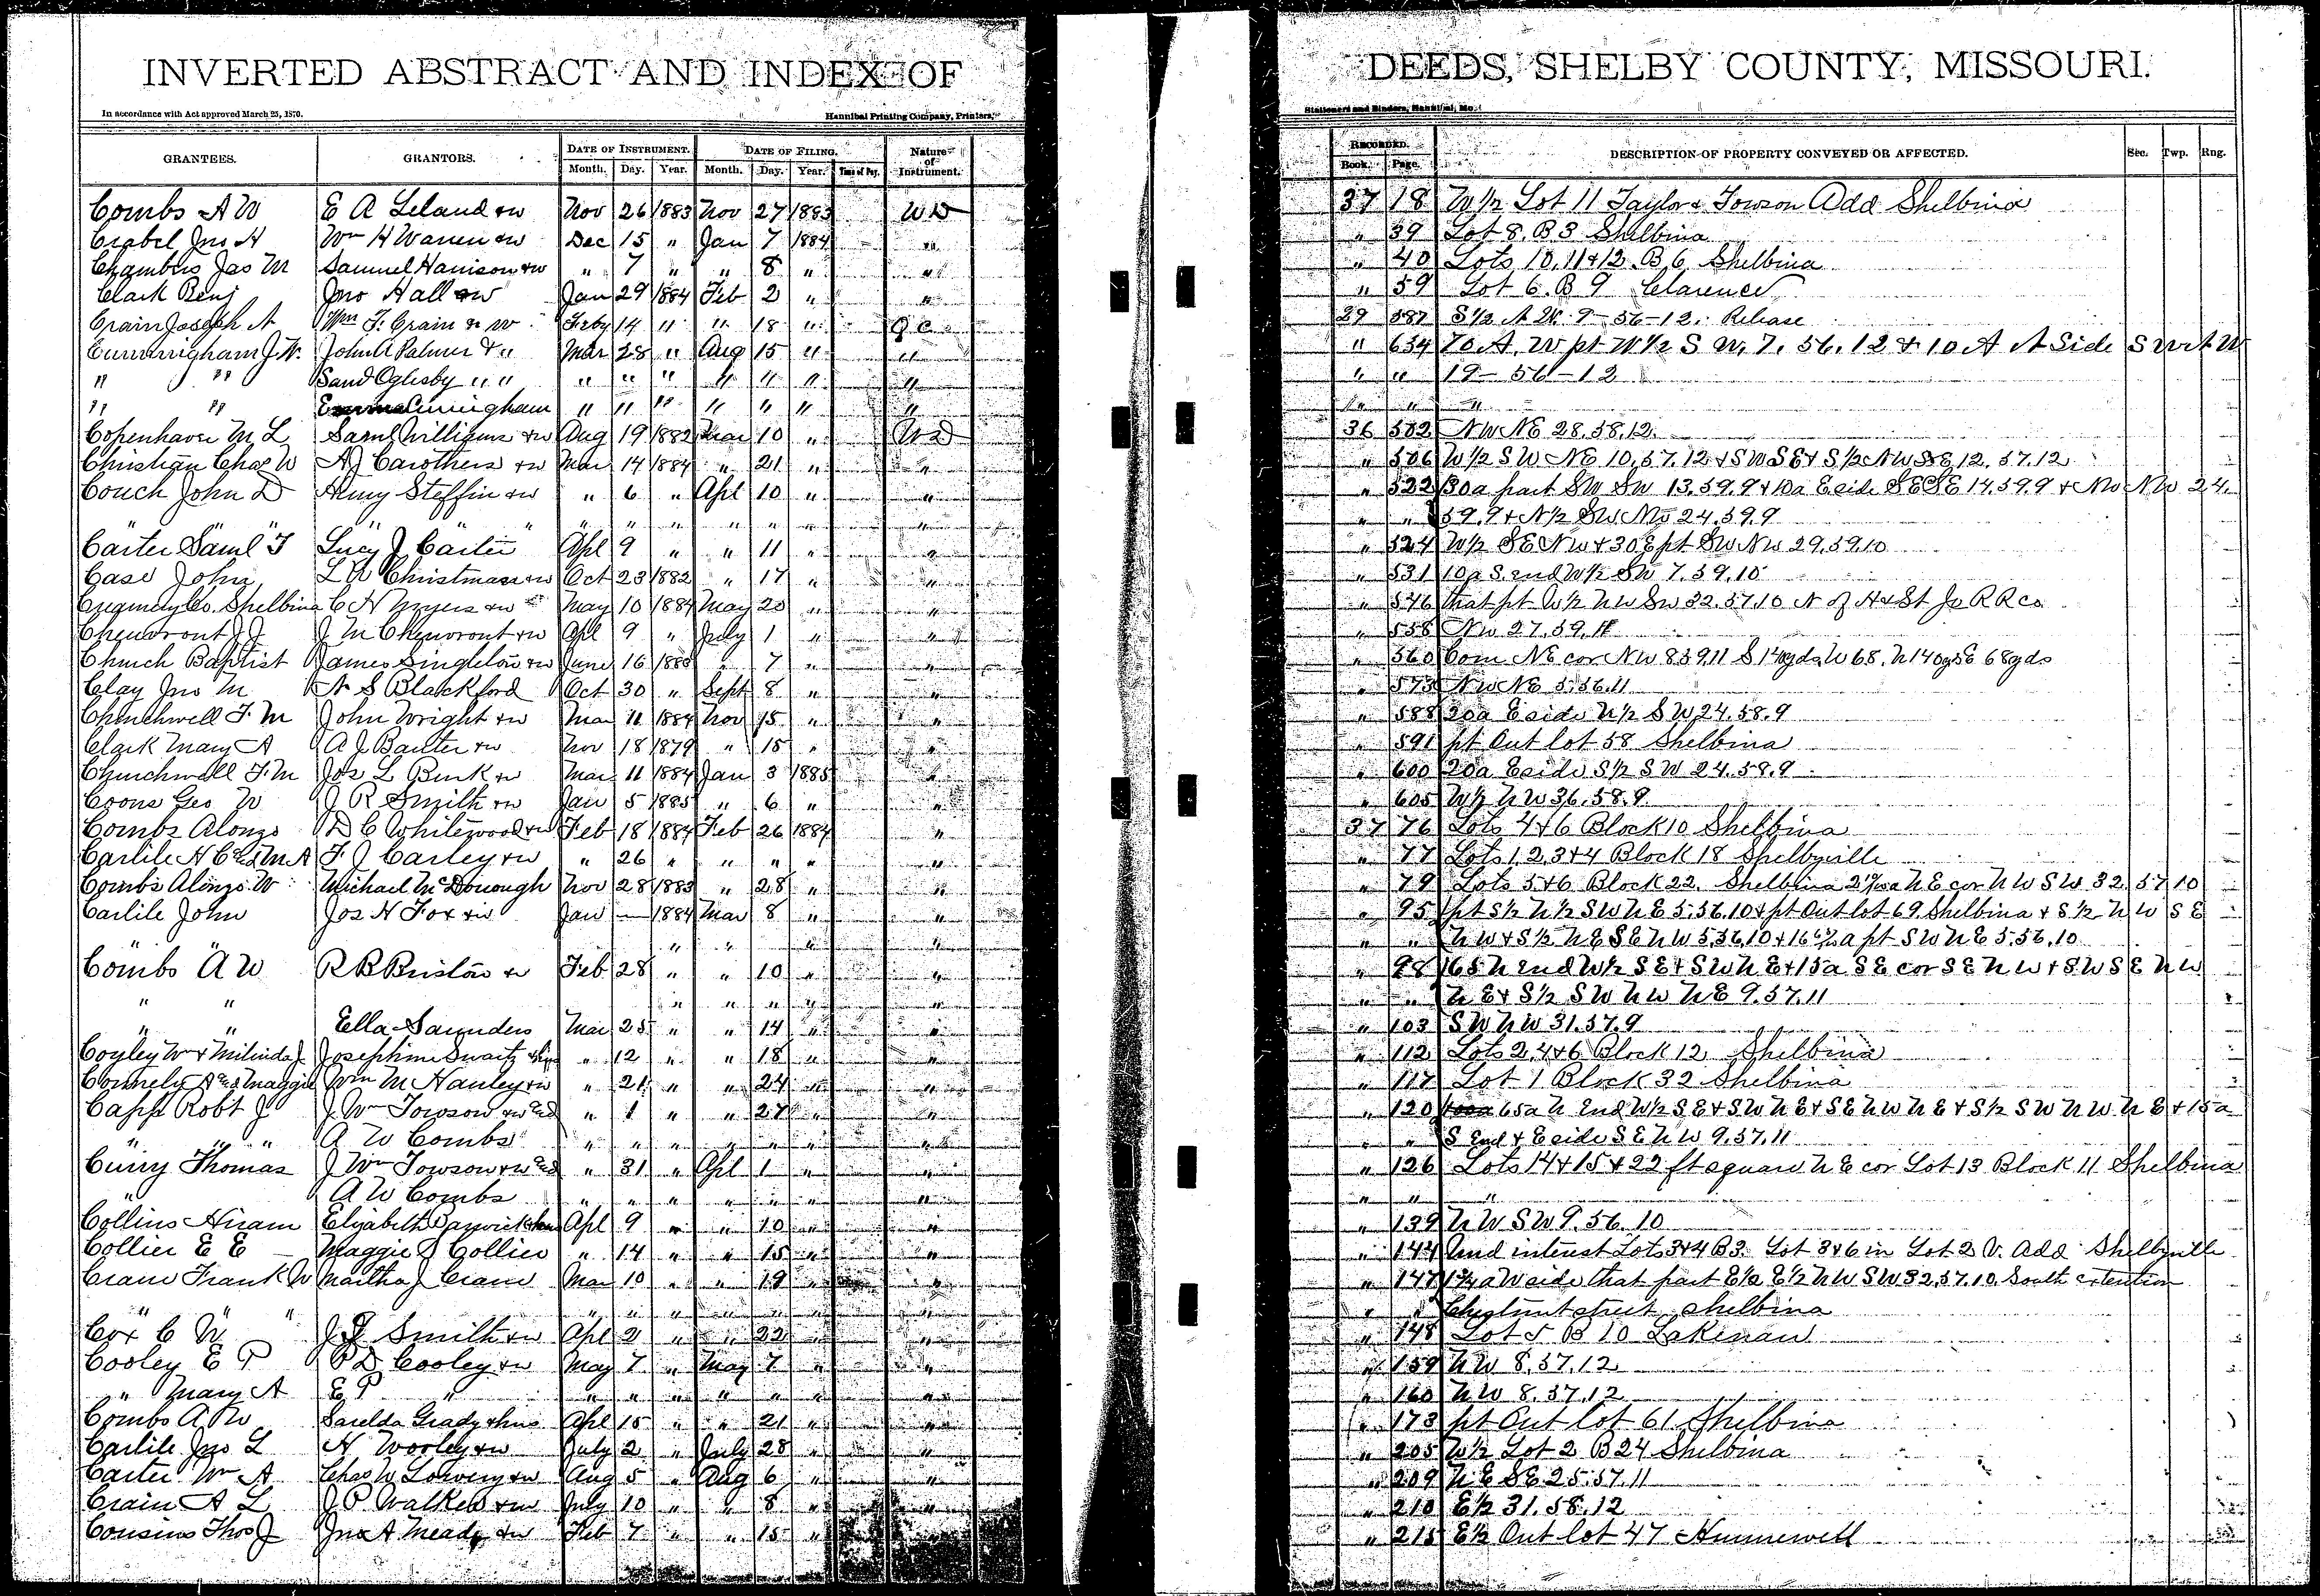 INVERTED ABSTRACT AND INDEX OF DEEDS, SHELBY COUNTY, MISSOURI.
In accordance with Act approved March 25, 1870. Hannibal Printing Company, Printers, Stationers and Binders, Hannibal, Mo.
GRANTEES. GRANTORS. DATE OF INSTRUMENT. DATE OF FILING. Nature of Instrument. RECORDED. DESCRIPTION OF PROPERTY CONVEYED OR AFFECTED. Sec. Twp. Rng.
Month. Day. Year. Month. Day. Year. Time of Day. Book. Page.
Combs A W E A Leland & w Nov 26 1883 Nov 27 1883 W D 37 18 W ½ Lot 11 Taylor & Towson Add Shelbina
Crabel Jno H Wm H Warren & w Dec 15 " Jan 7 1884 " " 39 Lot 8. B 3 Shelbina
Chambers Jas M Samuel Harrison & w " 7 " " 8 " " " 40 Lots 10, 11 & 12. B 6 Shelbina
Clark Benj Jno Hall & w Jan 29 1884 Feb 2 " " " 59 Lot 6. B 9 Clarence
Crain Joseph A Wm F. Crain & w Feby 14 " " 18 " Q C 29 587 S ½ N W. 9-56-12. Release
Cunningham J. W. John A Palmer & " Mar 28 " Aug 15 " " " 634 70 A. W pt W ½ S W. 7. 56. 12 & 10 A N Side S W N W
" " Saml Oglesby " " " " " " " " " " " 19-56-12
" " Emma Cunningham " " " " " " " " " "
Copenhaver M L Saml Williams & w Aug 19 1882 Mar 10 " W D 36 502 N W N E 28. 58. 12.
Christian Chas W A J Carothers & w Mar 14 1884 " 21 " " " 506 W ½ S W N E 10. 57. 12 & S W S E & S ½ N W S E 12. 57. 12
Couch John D Henry Steffin & w " 6 " Apl 10 " " " 522 30a part SW SW 13. 59. 9 & 10a E side SE SE 14. 59. 9 & NW NW 24.
" " " " " " " " " " " " " " " 59. 9 & N ½ SW NW 24. 59. 9
Carter Saml T Lucy J Carter Apl 9 " " 11 " " " 524 W ½ SE NW & 30 E pt SW NW 29. 59. 10
Case John L W Christman & w Oct 23 1882 " 17 " " " 531 10a S. end W ½ SW 7. 59. 10
Creamery Co. Shelbina C H Myers & w May 10 1884 May 20 " " " 546 that pt W ½ N W SW 32. 57. 10 N of H & St Jo R R co
Chenvront J J J M Chenvront & w Apl 9 " July 1 " " " 558 NW 27. 59. 11
Church Baptist James Singleton & w June 16 1880 " 7 " " " 560 Com NE cor NW 8 59 11 S 140 yds W 68. N 140 yds E 68 yds
Clay Jno M N S Blackford Oct 30 " Sept 8 " " " 573 NW NE 5. 56. 11
Churchwell F. M John Wright & w Mar 11 1884 Nov 15 " " " 588 20a E side N ½ S W 24. 58. 9
Clark Mary A A J Baxter & w Nov 18 1879 " 15 " " " 591 pt Out lot 58 Shelbina
Churchwell F. M Jos L Burk & w Mar 11 1884 Jan 3 1885 " " 600 20a E side S ½ S W 24. 58. 9
Coons Geo W J R Smith & w Jan 5 1885 " 6 " " " 605 W ½ N W 36. 58. 9
Combs Alonzo D C Whitewood & w Feb 18 1884 Feb 26 1884 " 37 76 Lots 4 & 6 Block 10 Shelbina
Carlile H C and M A F. J Carley & w " 26 " " " " " " 77 Lots 1, 2, 3 & 4 Block 18 Shelbyville
Combs Alonzo W Michael McDonough Nov 28 1883 " 28 " " " 79 Lots 5 & 6 Block 22. Shelbina N E cor N W S W 32 57 10
Carlile John Jos H Fox & w Jan — 1884 Mar 8 " " " 95 pt S ½ N ½ S W N E 5. 56. 10 & pt Out lot 69 Shelbina & S ½ N W S E
" " " " " " " " N W & S ½ N E S E N W 5. 56. 10 & a pt S W N E 5. 56. 10
Combs A W R B Bristow & w Feb 28 " " 10 " " " 98 65 N end W ½ S E & S W N E & 15a S E cor S E N W & S W S E N W
" " " " " " " " " N E & S ½ S W N W N E 9. 57. 11
" " Ella Saunders Mar 25 " " 14 " " " 103 S W N W 31. 57. 9
Coyley Wm & Milinda J. Josephine Swartz & hus " 12 " " 18 " " " 112 Lots 2, 4 & 6 Block 12 Shelbina
Connely A and Maggie Wm M Hanley & w " 21 " " 24 " " " 117 Lot 1 Block 32 Shelbina
Capp Robt J J Wm Towson & w and " 1 " " 27 " " " 120 65a N End W ½ S E & S W N E & S E N W N E & S ½ S W N W N E & 15a
" " " A W Combs " " " " " " " " " S End & E side S E N W 9. 57. 11
Curry Thomas J Wm Towson & w and " 31 " Apl 1 " " " 126 Lots 14 & 15 & 22 ft square N E cor Lot 13 Block 11 Shelbina
" A W Combs " " " " " " " " " "
Collins Hiram Elizabeth Barwick & hus Apl 9 " " 10 " " " 139 N W S W 9. 56. 10
Collier E E Maggie J Collier " 14 " " 15 " " " 144 Und interest Lots 3 & 4 B 3. Lot 3 & 6 in Lot 2 V. Add Shelbyville
Cram Frank W Martha J Cram Mar 10 " " 19 " " " 147 a W side that part E ½ E ½ N W S W 32. 57. 10. South extention
" " " " " " " " " " " Chestnut street Shelbina
Cox C W J J Smith & w Apl 2 " " 22 " " " 148 Lot 5 B 10 Lakenan
Cooley E P P D Cooley & w May 7 " May 7 " " " 159 N W 8. 57. 12
" Mary A E P " " " " " " " " " 160 N W 8. 57. 12
Combs A W Sarelda Grady & hus Apl 15 " " 21 " " " 173 pt Out lot 61 Shelbina
Carlile Jno L H Wooley & w July 2 " July 28 " " " 205 W ½ Lot 2 B 24 Shelbina
Carter Wm A Chas W Lowery & w Aug 5 " Aug 6 " " " 209 N E S E 25. 57. 11
Crain A L J P Walker & w July 10 " " 8 " " " 210 E ½ 31. 58. 12
Cousins Thos J Jno A Meady & w Feb 7 " " 15 " " " 215 E ½ Out lot 47 Hunnewell